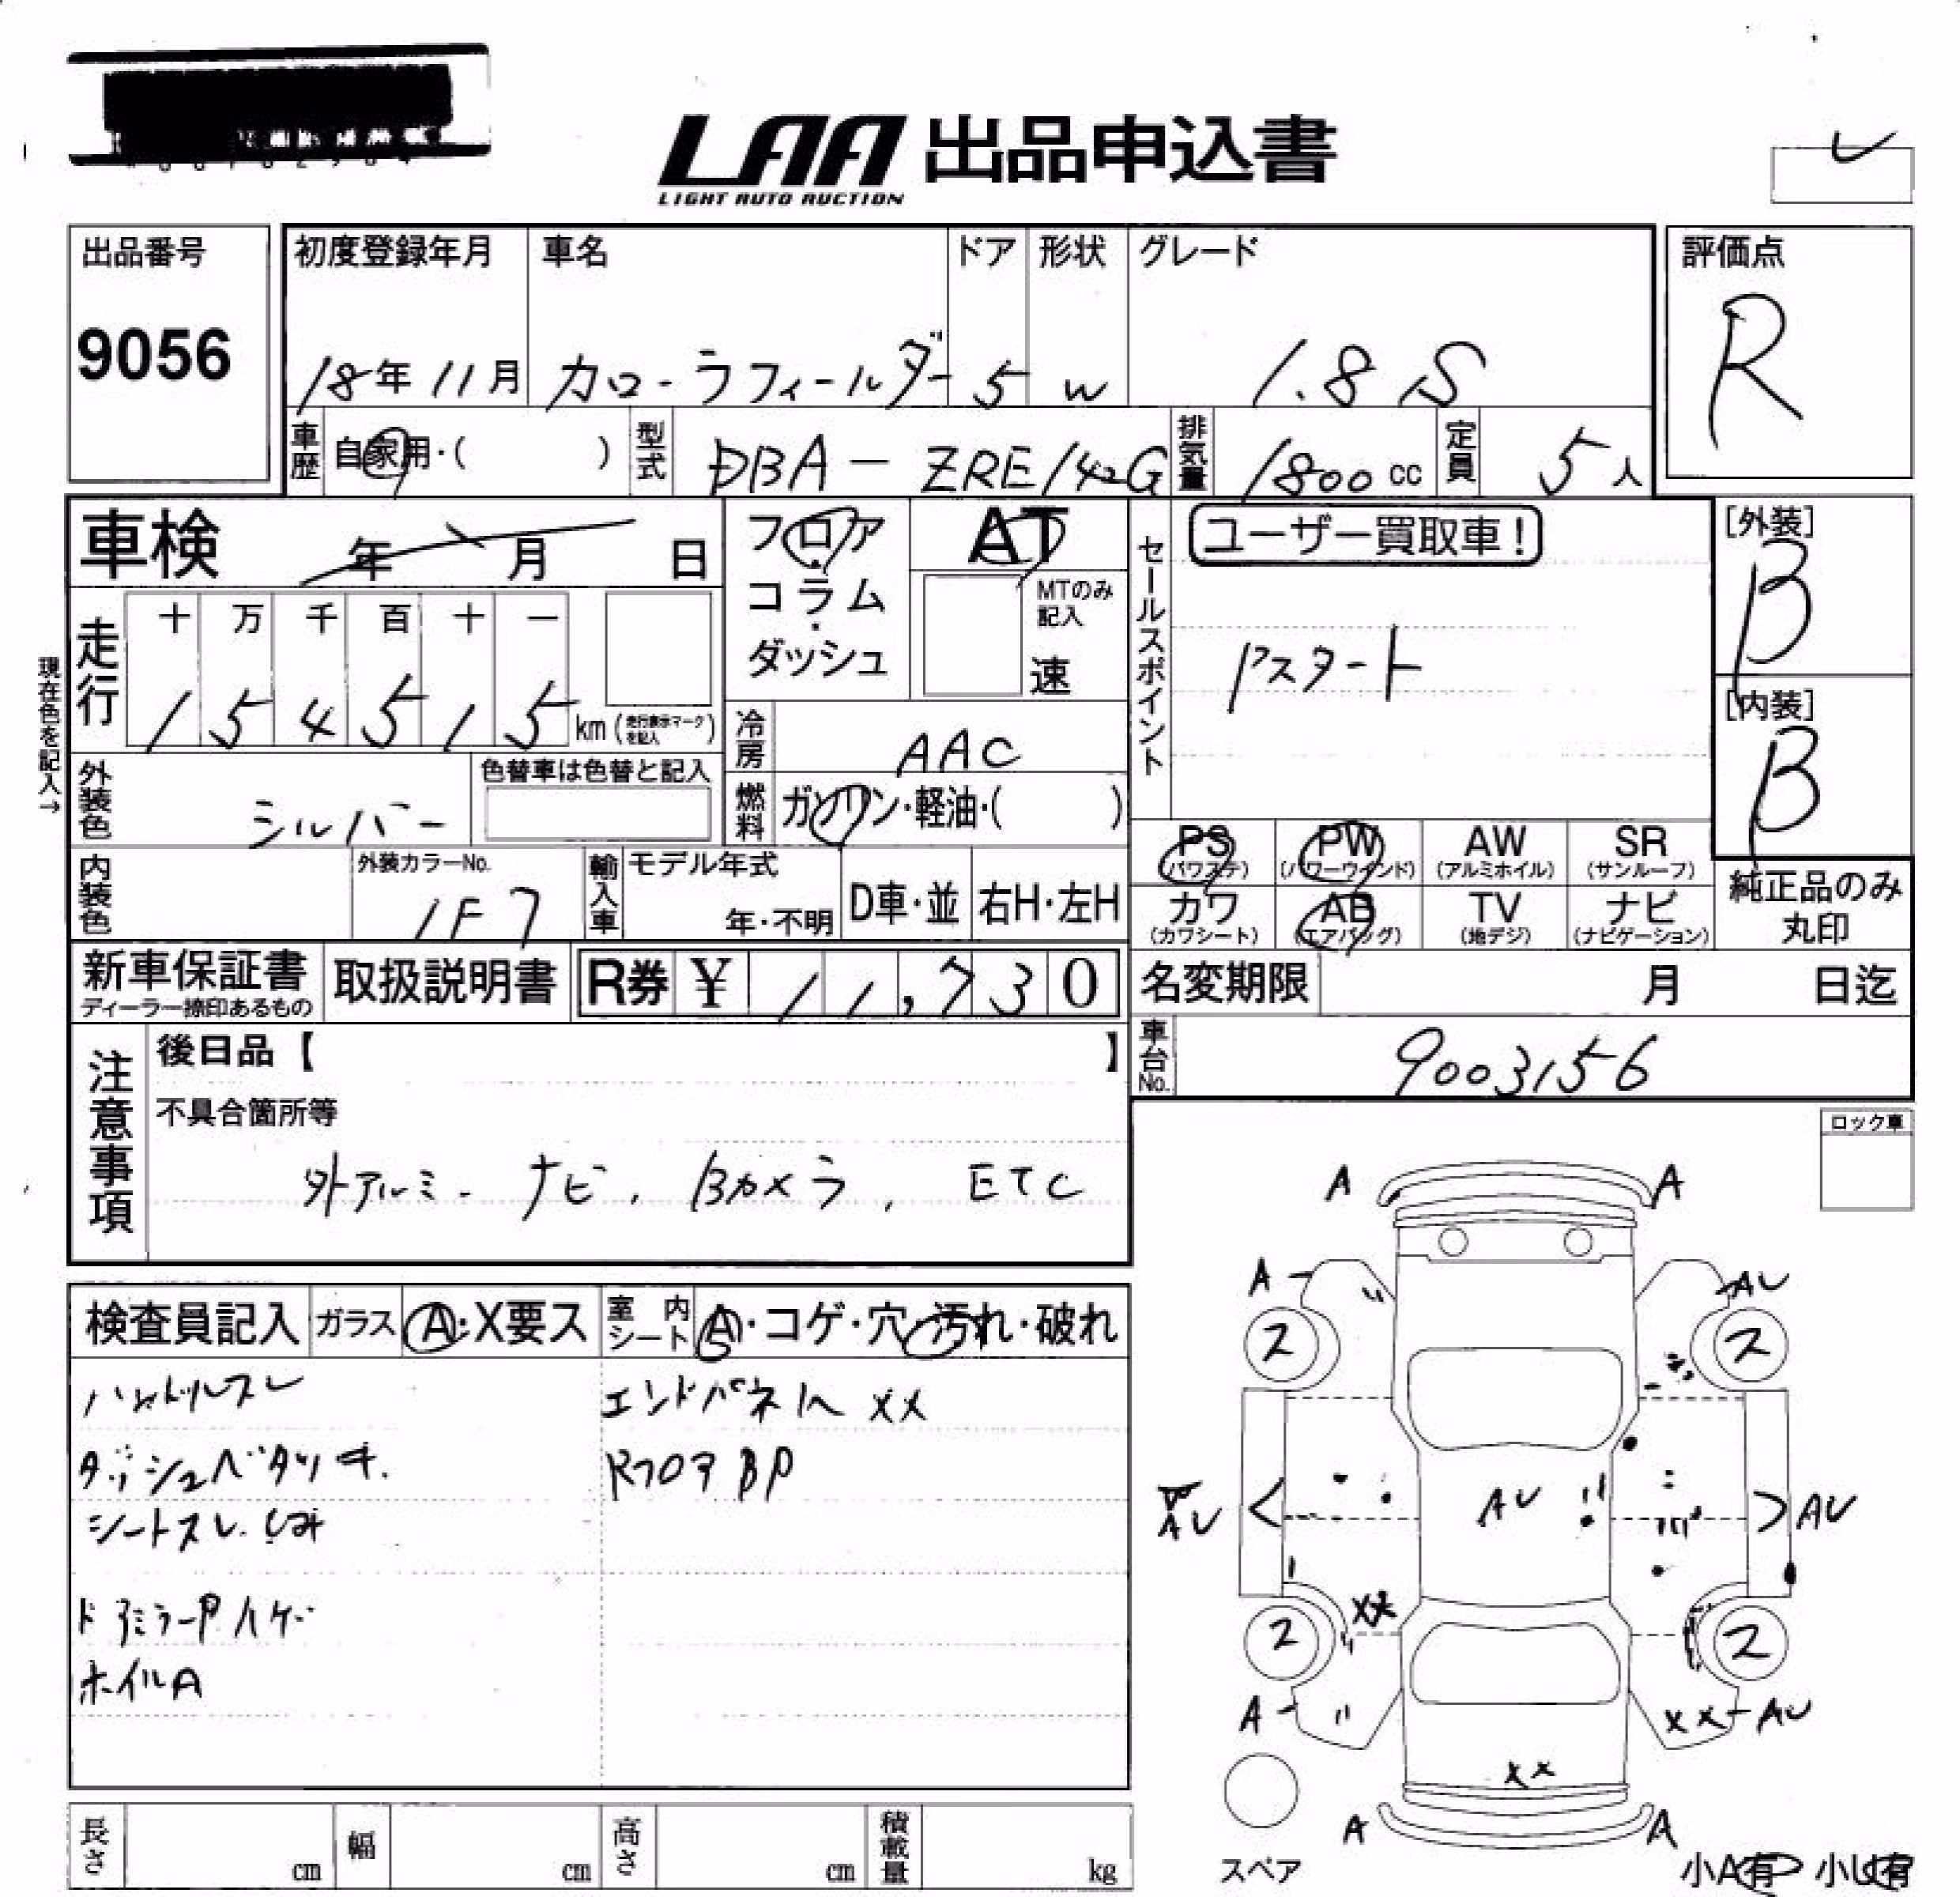 LAA 出品申込書
LIGHT AUTO AUCTION
出品番号
9056
初度登録年月 車名 ドア 形状 グレード
18年11月 カローラフィールダー 5 W 1.8 S
評価点
R
車歴 自家用・( ) 型式 DBA-ZRE142G 排気量 1800cc 定員 5人
車検 年 月 日
フロア・コラム・ダッシュ
AT
MTのみ記入
速
セールスポイント
ユーザー買取車!
Pスタート
[外装]
B
[内装]
B
現在色を記入→
走行 十 万 千 百 十 一
1 5 4 5 1 5 km (走行表示マークを記入)
冷房 AAC
外装色 シルバー
色替車は色替と記入
燃料 ガソリン・軽油・( )
PS (パワステ) PW (パワーウインド) AW (アルミホイル) SR (サンルーフ)
カワ (カワシート) AB (エアバッグ) TV (地デジ) ナビ (ナビゲーション)
純正品のみ丸印
内装色 外装カラーNo. 1F7
輸入車 モデル年式 年・不明 D車・並 右H・左H
新車保証書 ディーラー捺印あるもの
取扱説明書
R券 ¥ 11,730
名変期限 月 日迄
車台No. 9003156
注意事項
後日品【 】
不具合箇所等
外アルミ. ナビ, Bカメラ, ETC
ロック車
検査員記入 ガラス A・X要ス 室内シート A・コゲ・穴・汚れ・破れ
ハンドルスレ
エンドパネル XX
ダッシュベタツキ.
Rフロア BP
シートスレ. しみ
ドアミラーPハゲ
ホイルA
A A
A AU
ス ス
AU AU AU
XX
ス ス
A XX-AU
XX
A A
スペア
小A有 小U有
長さ cm 幅 cm 高さ cm 積載量 kg